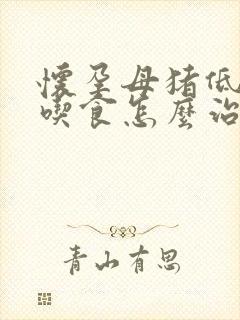 懷孕母猪低
喫食怎麼治
青山有思